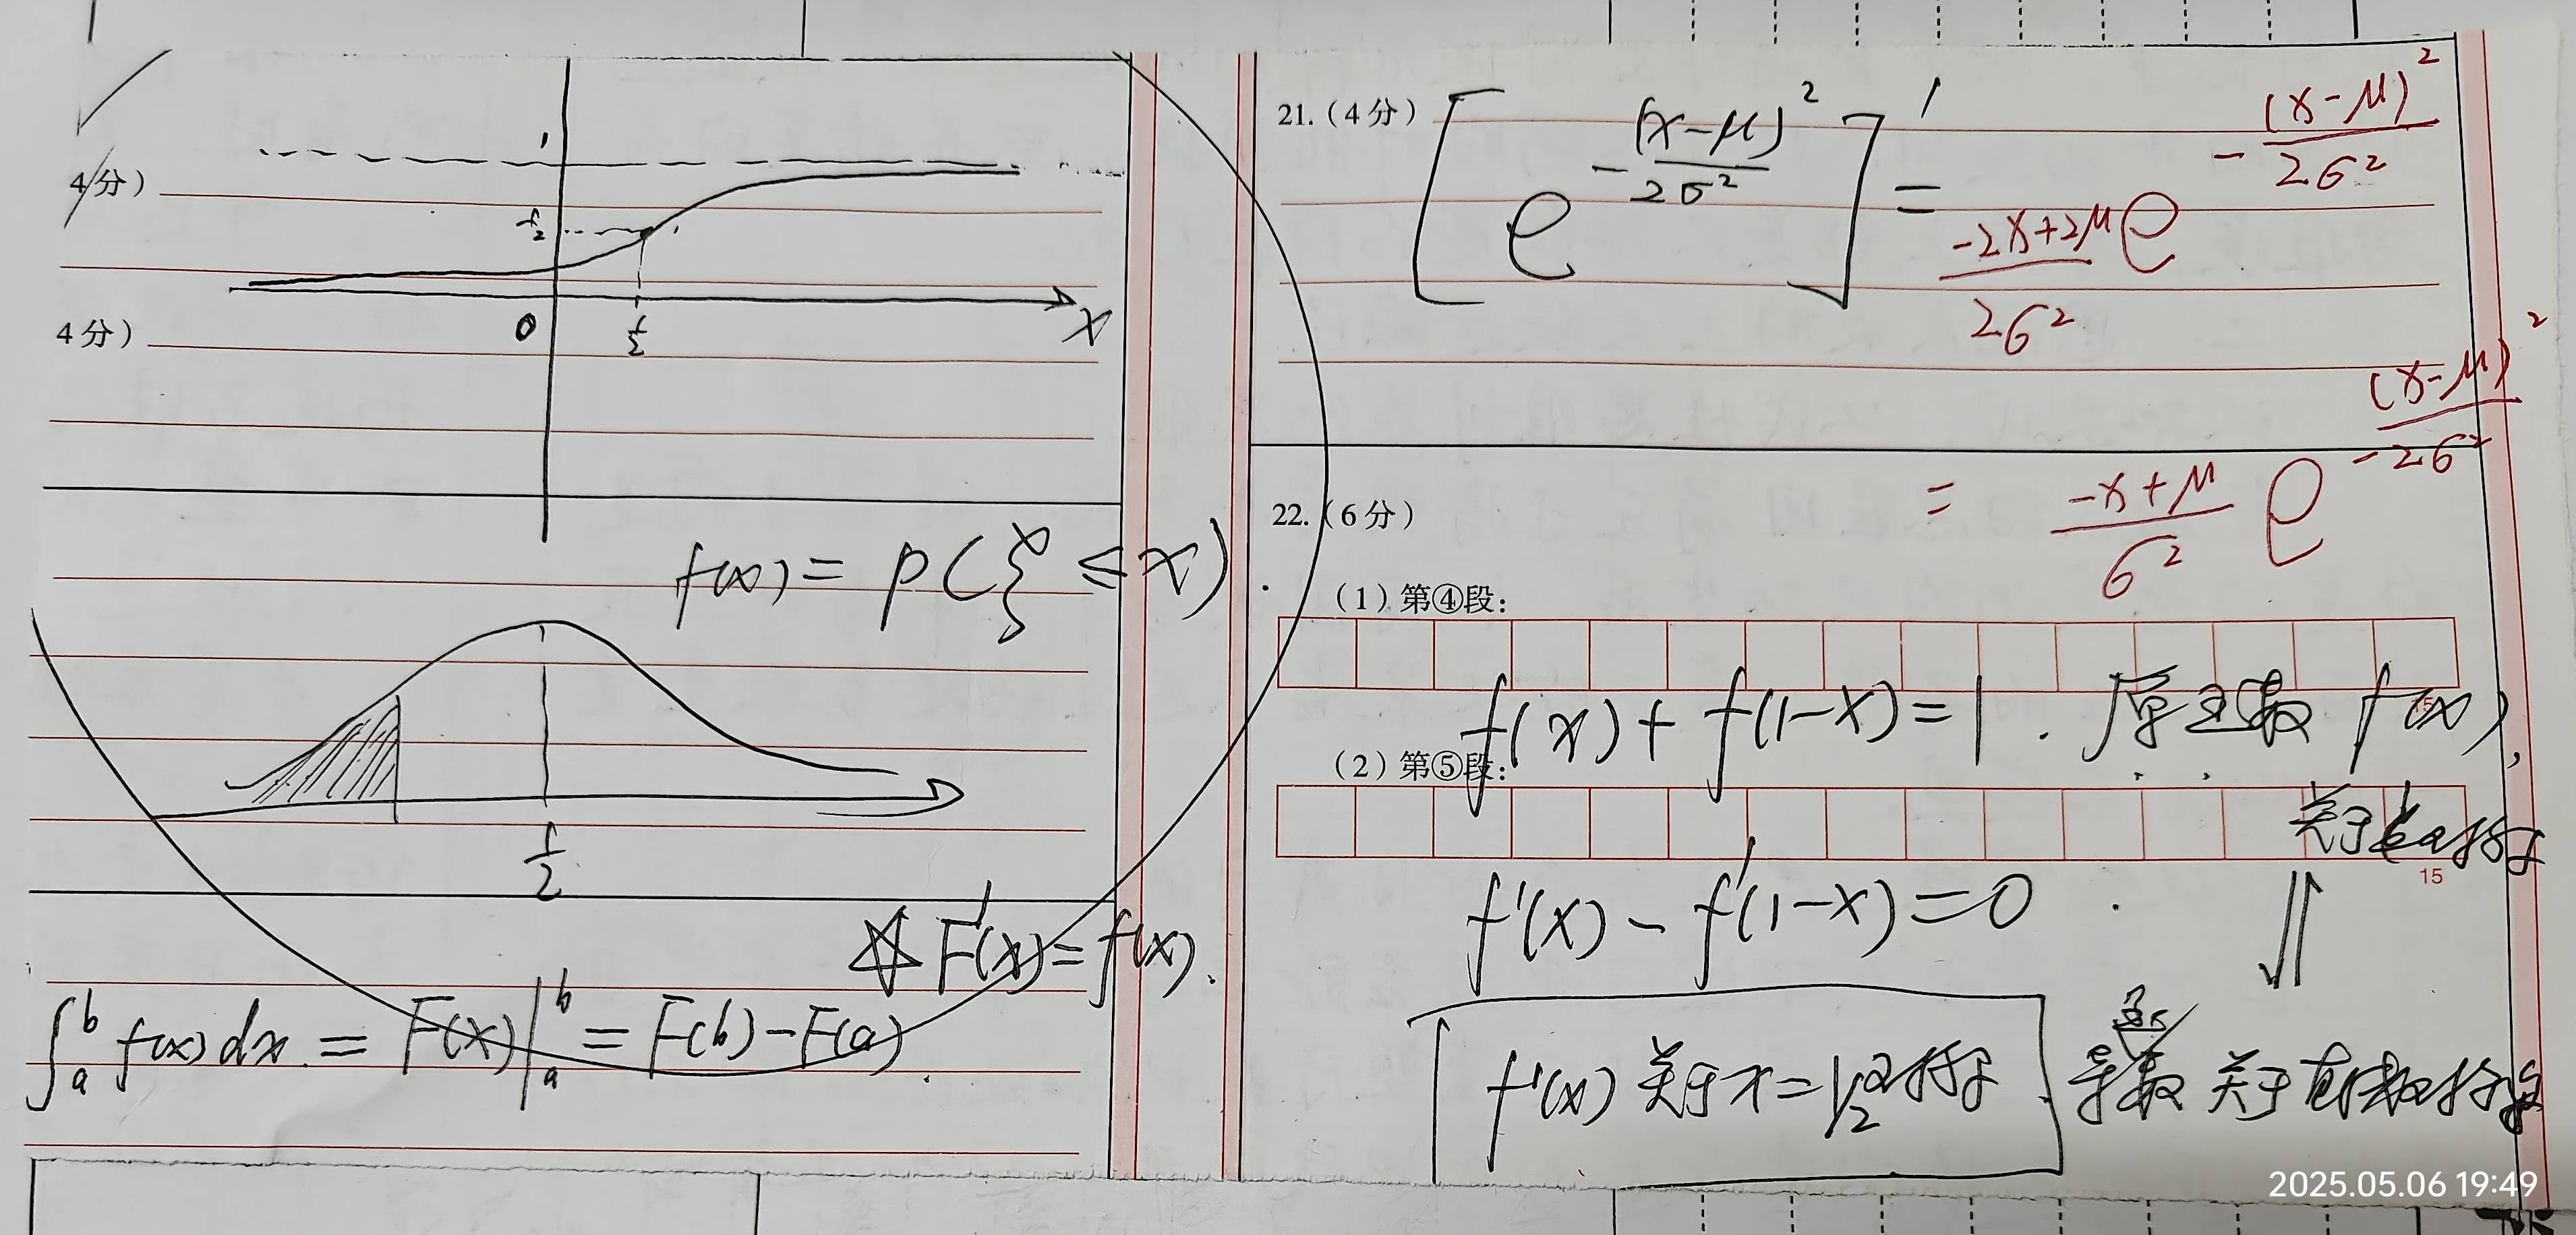 1
4分）
1/2
0
1/2
x
4分）
f(x) = P(ξ ≤ x).
1/2
☆ F'(x) = f(x).
∫_a^b f(x)dx = F(x)|_a^b = F(b)-F(a).
21.（4分）
[e^{-(x-μ)^2/2σ^2}]' = (-2x+2μ)/2σ^2 e^{-(x-μ)^2/2σ^2}
= (-x+μ)/σ^2 e^{-(x-μ)^2/2σ^2}
22.（6分）
（1）第④段：
15
f(x)+f(1-x)=1. 原函数 f(x),
（2）第⑤段：
关于点对称
15
f'(x)-f'(1-x)=0
⇓
f'(x) 关于 x=1/2 对称.
导数 关于直线对称
2025.05.06 19:49